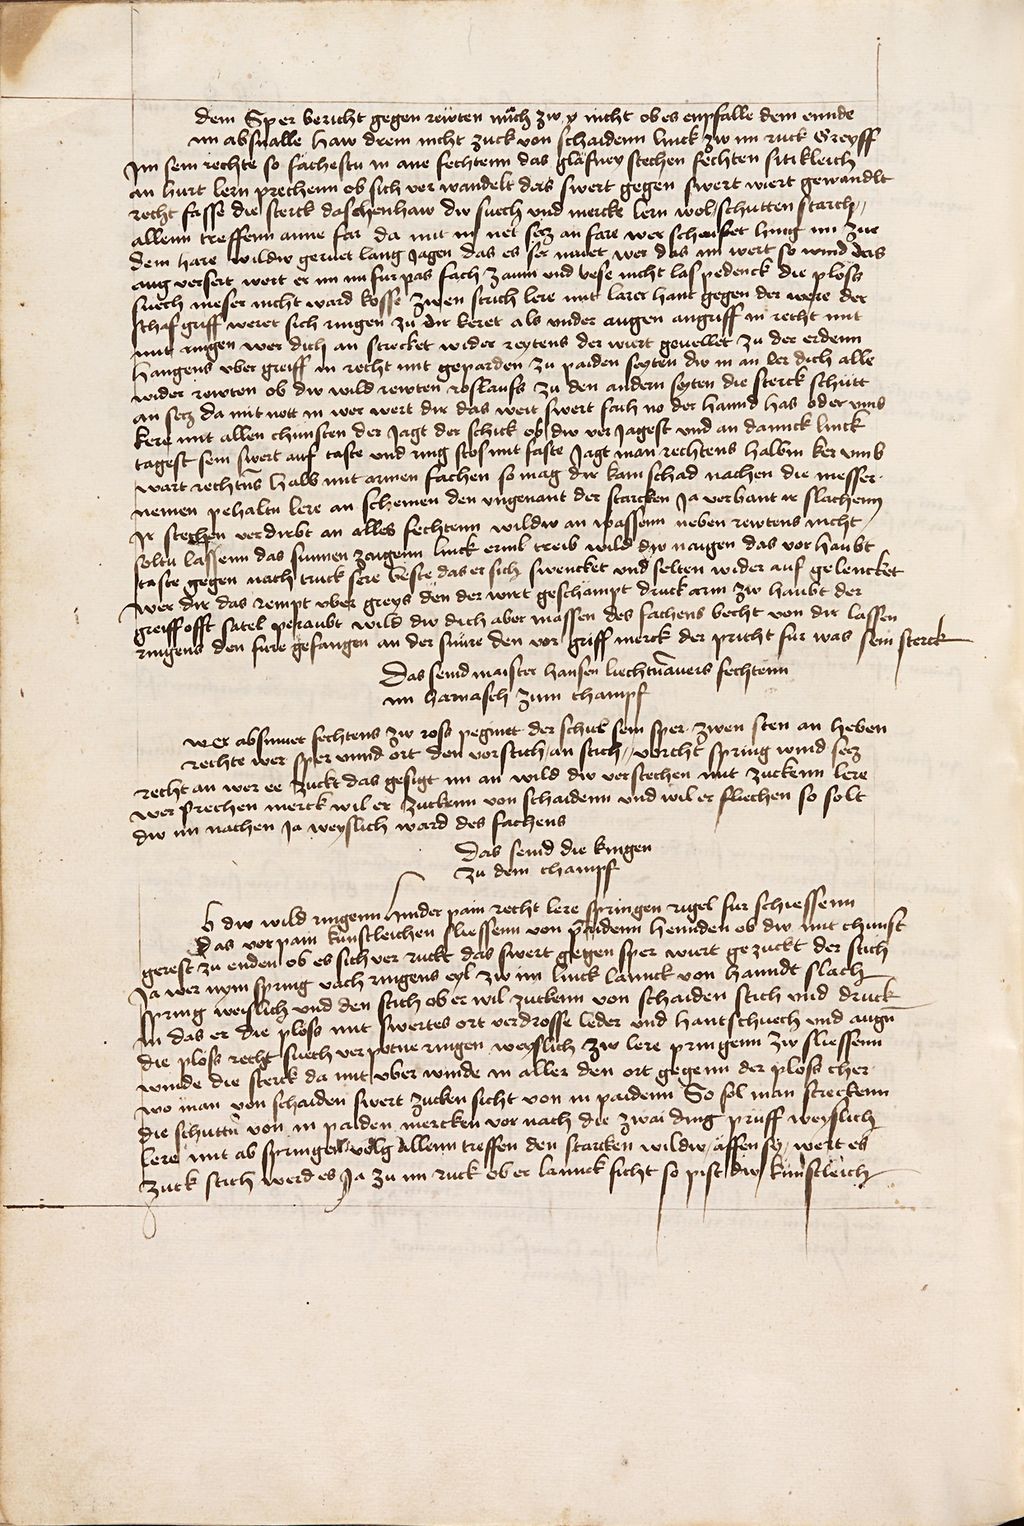 dem Sper bericht gegen rewten müch zw y nicht ob es enpfalle dem ennde
im absnalle haw drein nicht zuck von schaidenn linck zw im ruck Greyff
Im sein rechte so fächestu in ane fechtenn das gläfney stechen fechten sitikleich
an hurt lern prechenn ob sich ver wandelt das swert gegen swert wiert gewandlt
recht fasse die sterck daschenhaw dw suech und mercke lern wol schutten starch
allenn treffenn anne far da mit in net secz an fare wer schenket hing im zue
dem hare wildw geruet lang Jagen das es ser müet wer das im wert so wind das
aug versert wert er im im fur pas fach zaum und vese nicht las pedenck die plöss
suech meser nicht ward kosse zwen strich lere mit larer hant gegen der were der
schaf griff weret sich ringen zu dir keret als under augen angriff in recht mit
mit ringen wer dich an strecket wider reytens der wirt geuellet zu der erdenn
hangens uber greiff in recht mit geparden zu paiden seyten dw in an ler dich alle
wider rewten ob dw wild rewten roslaufs zu den andern seyten die sterck schütt
an secz da mit nott in wer wert dir das weit swert fach no der hannd has oder umb
kere mit allen chunsten der Jagt der schick ob dw ver Jagest und an danck linck
tagest sein swert auf taste und ring stos mit faste Jagt man rechtens halbm ker umb
wart rechtns halb mit armen fachen so mag dir kain schad nachen die messer
nemen pehaltn lere an schemen den ungenant der starcken Ja verhant ir slachenn
Ir stechen verdirbt an alles fechtenn wildw an massenn neben rewtens nicht
soltu lassenn das sunnen zaigenn linck erml treib wild dw naigen das vor haubt
taste gegen nach truck sere veste das er sich swencket und selten wider auf gelencket
wer dir das rempt uber greys den der wirt geschämpt druck arm zw haubt der
greiff offt satel peraubt wild dw dich aber massen des fachens becht von dir lassen
ringens den füre gefangen an der snüre den vor griff merck der pricht fur was sein sterck
Das seind maister hansen liechtnauers fechtenn
im harnasch zum champf
wer absinnet fechtens zw ross peginet der schul sein sper zwen sten an heben
rechte wer sper unnd ort den vorstich an stich vorcht spring wind secz
recht an wer ee zuckt das gesigt im an wild dw verstechen mit zuckenn lere
wer prechen merck wil er zuckenn von schaidenn und wil er fliechen so solt
dw im nachen Ja weyslich ward des fachens
Das seind die Ringen
zu dem champf
b dw wild ringenn hinder pain recht lere springen rigel fur schiessenn
Das vor pain kunstleichen sliessenn von paidenn hennden ob dw mit chunst
gerest zu enden ob es sich ver ruckt das swert gegen sper wiert gezuckt der stich
Ja wer nym spring vach ringens eyl zw im linck lannck von hanndt slach
spring weislich und den stich ob er wil zuckenn von schaiden stich und druck
in das er die plöss mit swertes ort verdrosse leder und hantschuech und augn
die plöss recht suech verpotne ringen weyslich zw lere pringenn zw sliessenn
winde die sterck da mit uber winde in aller den ort gegenn der plöss cher
wo man von schaiden swert zucken sicht von in paidenn So sol man sterckenn
die schuttn von in paiden mercken vor nach die zwai ding prüff weyslich
lere mit ab springen volg Allenn treffen den starcken wildw äffen sy wert es
zuck stich werd es Ja zu im ruck ob er lannck ficht so pist dw künstleich